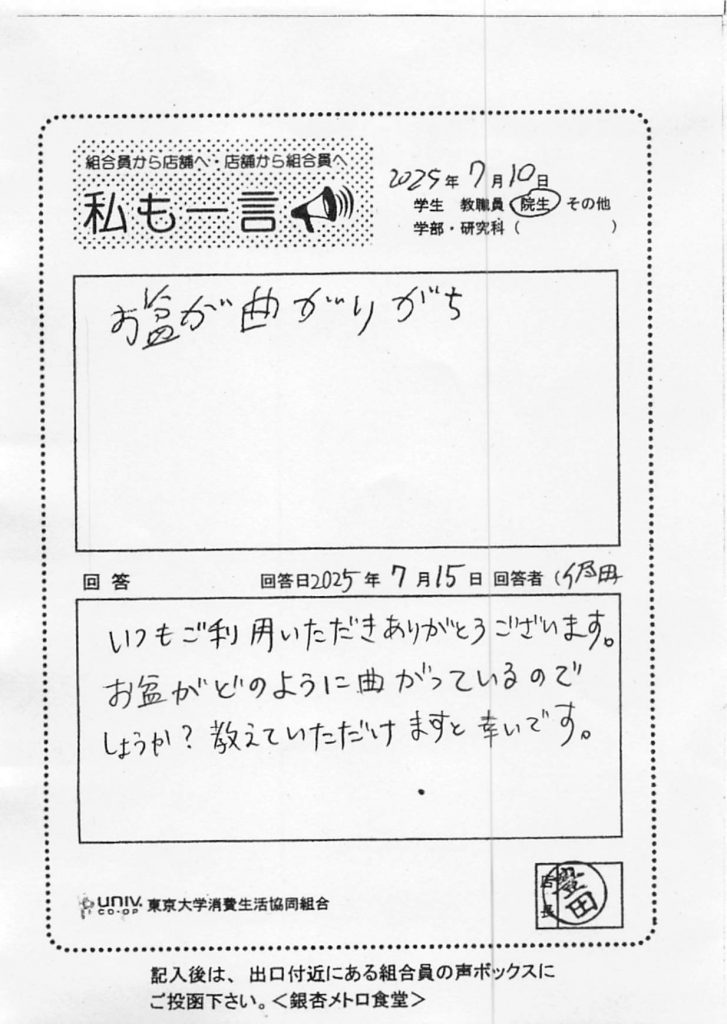 組合員から店舗へ・店舗から組合員へ
私も一言
2025年 7月10日
学生 教職員 院生 その他
学部・研究科（ ）
お盆が曲がりがち
回答 回答日2025年 7月15日 回答者（
いつもご利用いただきありがとうございます。
お盆がどのように曲がっているので
しょうか？教えていただけますと幸いです。
UNIV. CO-OP 東京大学消費生活協同組合
店長
記入後は、出口付近にある組合員の声ボックスに
ご投函下さい。＜銀杏メトロ食堂＞